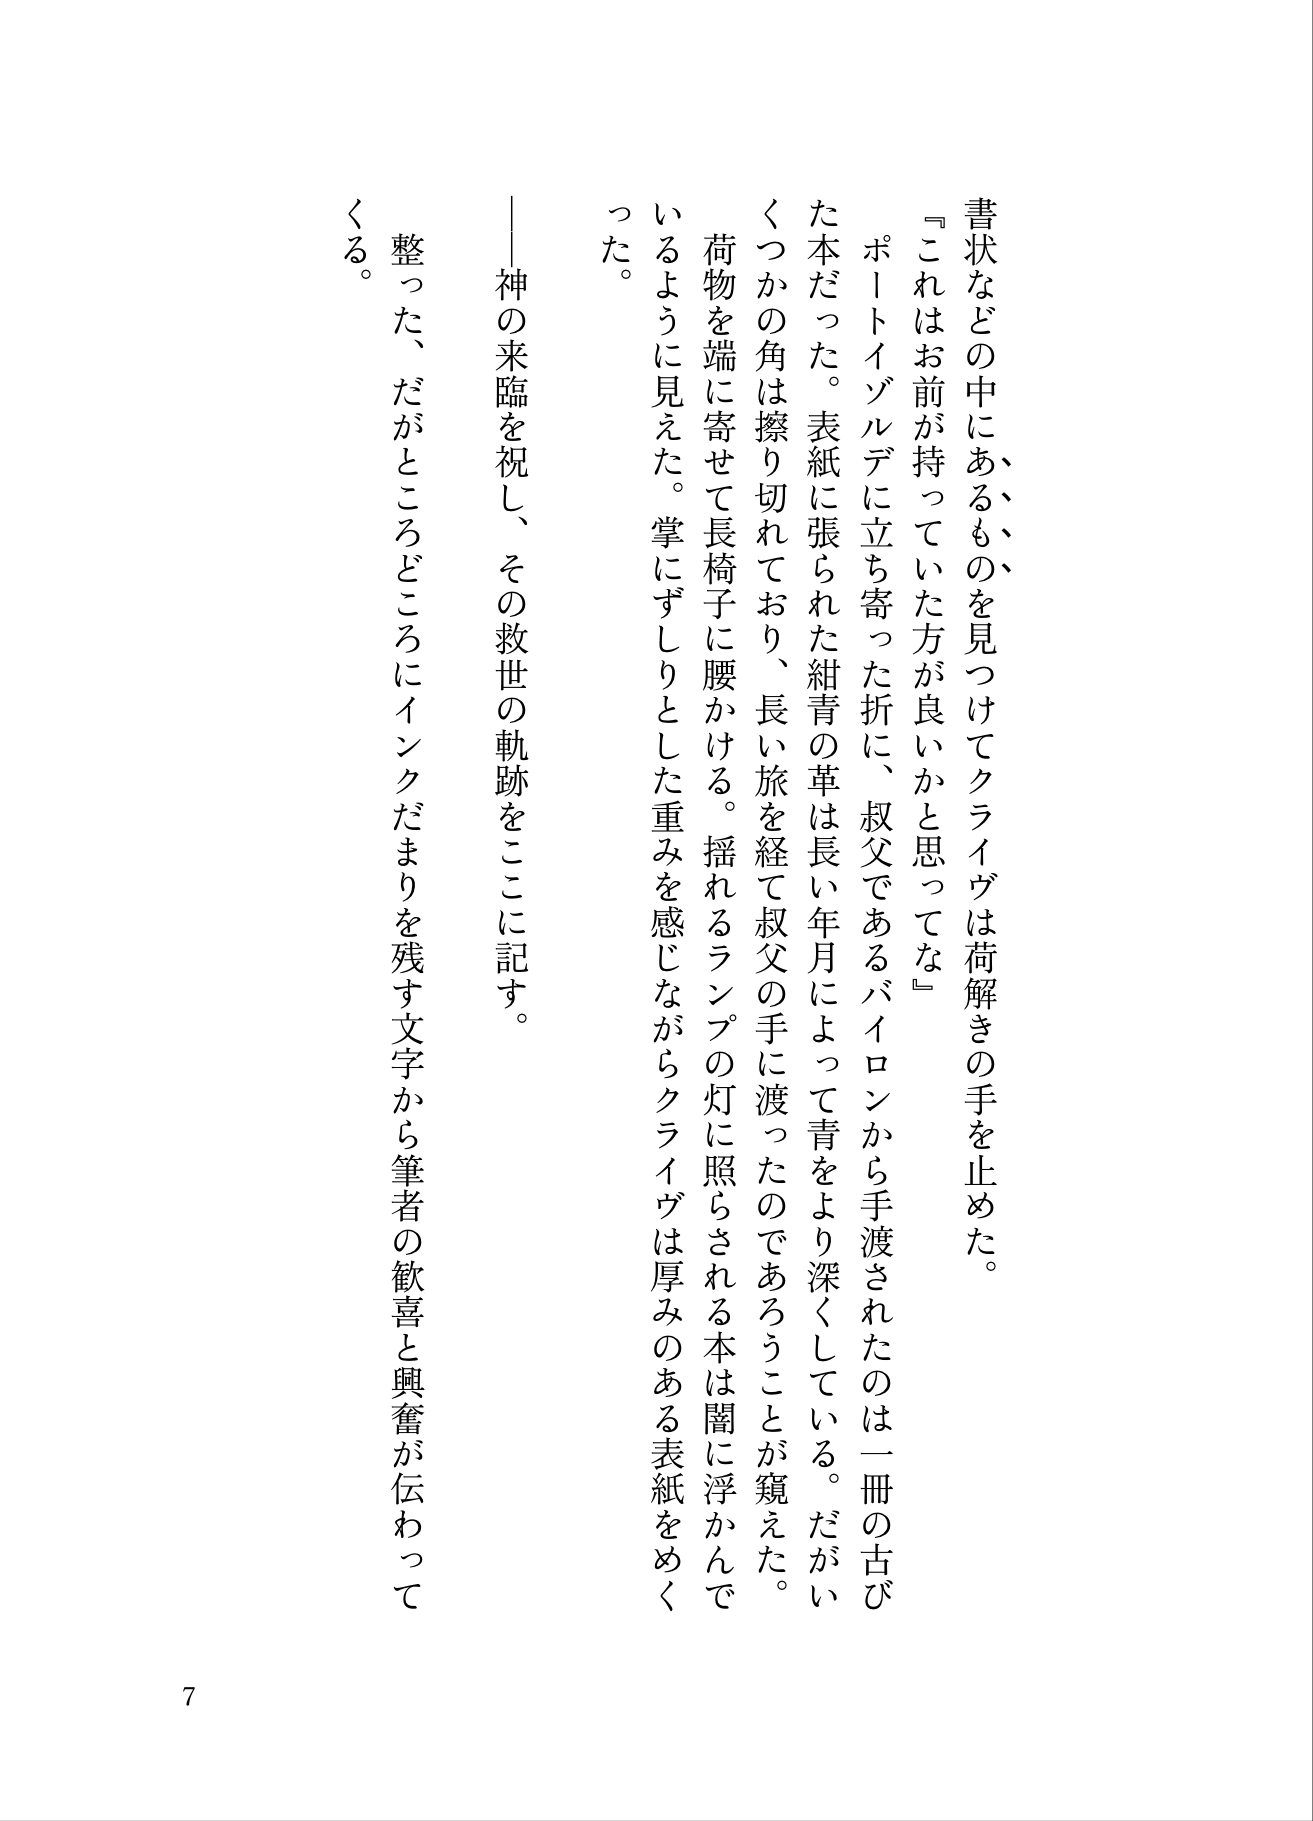 書状などの中にあるものを見つけてクライヴは荷解きの手を止めた。
『これはお前が持っていた方が良いかと思ってな』
　ポートイゾルデに立ち寄った折に、叔父であるバイロンから手渡されたのは一冊の古び
た本だった。表紙に張られた紺青の革は長い年月によって青をより深くしている。だがい
くつかの角は擦り切れており、長い旅を経て叔父の手に渡ったのであろうことが窺えた。
　荷物を端に寄せて長椅子に腰かける。揺れるランプの灯に照らされる本は闇に浮かんで
いるように見えた。掌にずしりとした重みを感じながらクライヴは厚みのある表紙をめく
った。
――神の来臨を祝し、その救世の軌跡をここに記す。
　整った、だがところどころにインクだまりを残す文字から筆者の歓喜と興奮が伝わって
くる。
7